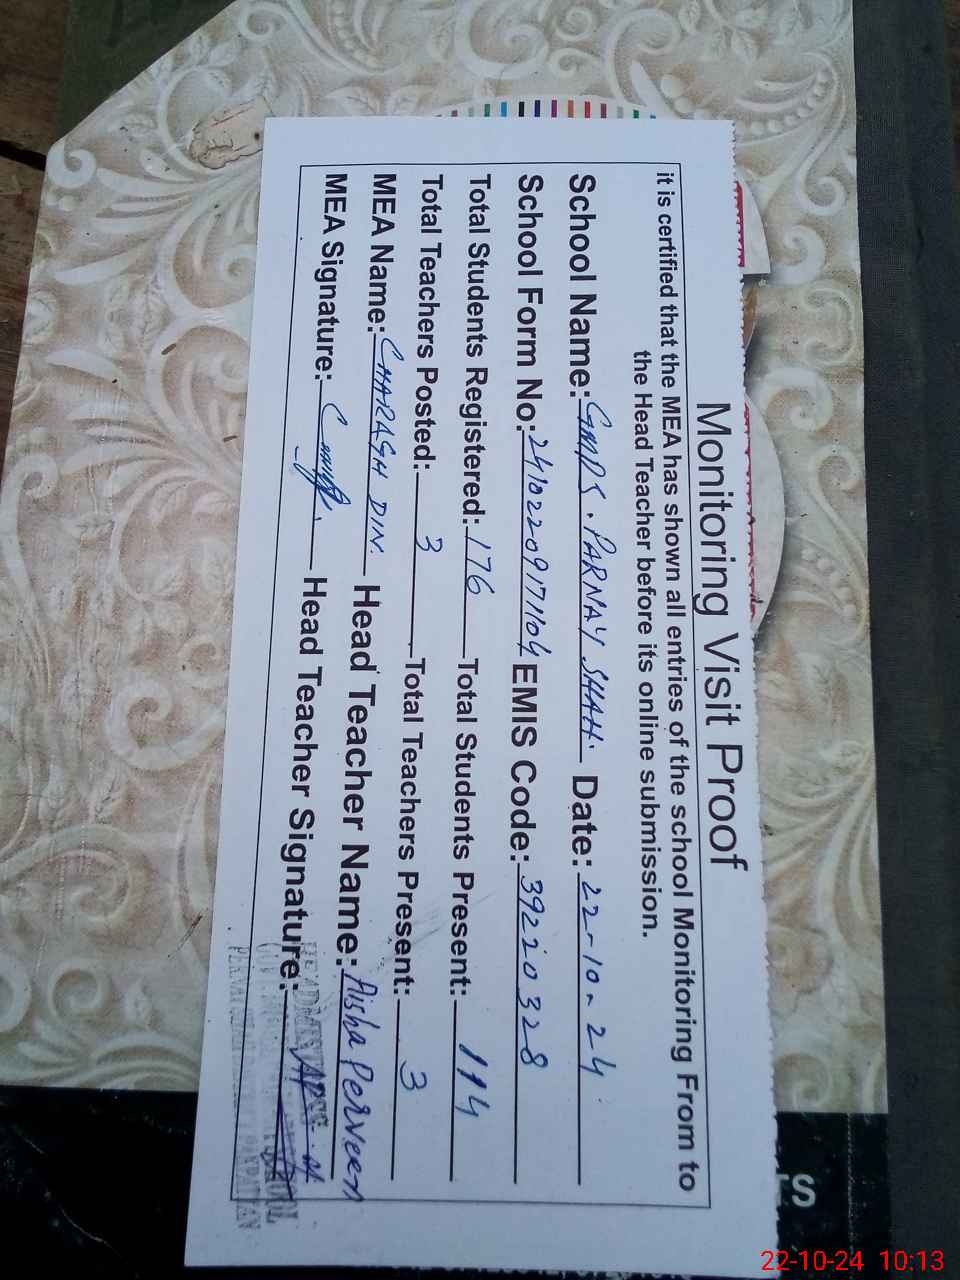 Monitoring Visit Proof
it is certified that the MEA has shown all entries of the school Monitoring From to
the Head Teacher before its online submission.
School Name: GMPS. PARNAY SHAH. Date: 22-10-24
School Form No: 24102209171104 EMIS Code: 39220328
Total Students Registered: 176 Total Students Present: 114
Total Teachers Posted: 3 Total Teachers Present: 3
MEA Name: CHARAGH DIN. Head Teacher Name: Aisha Perveen
MEA Signature: Head Teacher Signature:
HEADMISTRESS
22-10-24 10:13